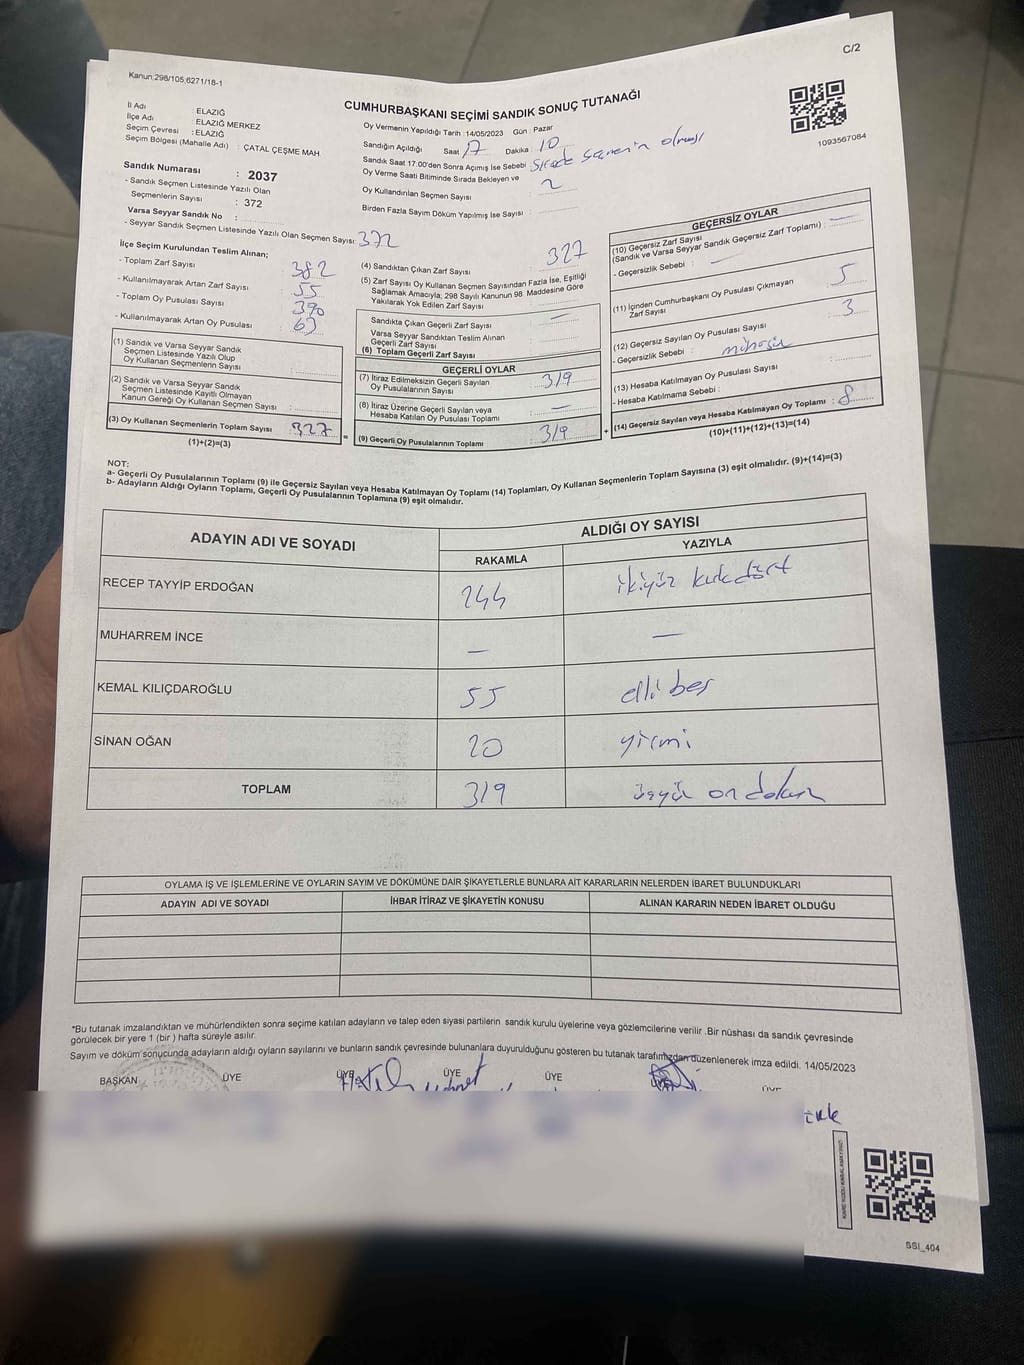 C/2
Kanun:298/105,6271/18-1
CUMHURBAŞKANI SEÇİMİ SANDIK SONUÇ TUTANAĞI
1093567084
İl Adı : ELAZIĞ
İlçe Adı : ELAZIĞ MERKEZ
Seçim Çevresi : ELAZIĞ
Seçim Bölgesi (Mahalle Adı) : ÇATAL ÇEŞME MAH
Sandık Numarası : 2037
- Sandık Seçmen Listesinde Yazılı Olan
Seçmenlerin Sayısı : 372
Varsa Seyyar Sandık No :
- Seyyar Sandık Seçmen Listesinde Yazılı Olan Seçmen Sayısı : 372
Oy Vermenin Yapıldığı Tarih :14/05/2023 Gün : Pazar
Sandığın Açıldığı Saat 17 Dakika 10
Sandık Saat 17.00'den Sonra Açımış İse Sebebi : Sırada seçmenin olması
Oy Verme Saati Bitiminde Sırada Bekleyen ve
Oy Kullandırılan Seçmen Sayısı : 2
Birden Fazla Sayım Döküm Yapılmış İse Sayısı :
İlçe Seçim Kurulundan Teslim Alınan;
- Toplam Zarf Sayısı : 382
- Kullanılmayarak Artan Zarf Sayısı : 55
- Toplam Oy Pusulası Sayısı : 390
- Kullanılmayarak Artan Oy Pusulası : 63
(1) Sandık ve Varsa Seyyar Sandık
Seçmen Listesinde Yazılı Olup
Oy Kullanan Seçmenlerin Sayısı :
(2) Sandık ve Varsa Seyyar Sandık
Seçmen Listesinde Kayıtlı Olmayan
Kanun Gereği Oy Kullanan Seçmen Sayısı :
(3) Oy Kullanan Seçmenlerin Toplam Sayısı : 327
(1)+(2)=(3)
(4) Sandıktan Çıkan Zarf Sayısı : 327
(5) Zarf Sayısı Oy Kullanan Seçmen Sayısından Fazla İse, Eşitliği
Sağlamak Amacıyla; 298 Sayılı Kanunun 98. Maddesine Göre
Yakılarak Yok Edilen Zarf Sayısı
Sandıkta Çıkan Geçerli Zarf Sayısı : —
Varsa Seyyar Sandıktan Teslim Alınan
Geçerli Zarf Sayısı
(6) Toplam Geçerli Zarf Sayısı
GEÇERLİ OYLAR
(7) İtiraz Edilmeksizin Geçerli Sayılan
Oy Pusulalarının Sayısı : 319
(8) İtiraz Üzerine Geçerli Sayılan veya
Hesaba Katılan Oy Pusulası Toplamı : —
= (9) Geçerli Oy Pusulalarının Toplamı : 319 +
GEÇERSİZ OYLAR
(10) Geçersiz Zarf Sayısı
(Sandık ve Varsa Seyyar Sandık Geçersiz Zarf Toplamı) : —
- Geçersizlik Sebebi : —
(11) İçinden Cumhurbaşkanı Oy Pusulası Çıkmayan
Zarf Sayısı : 5
(12) Geçersiz Sayılan Oy Pusulası Sayısı : 3
- Geçersizlik Sebebi : mühürsüz
(13) Hesaba Katılmayan Oy Pusulası Sayısı :
- Hesaba Katılmama Sebebi :
(14) Geçersiz Sayılan veya Hesaba Katılmayan Oy Toplamı : 8
(10)+(11)+(12)+(13)=(14)
NOT:
a- Geçerli Oy Pusulalarının Toplamı (9) ile Geçersiz Sayılan veya Hesaba Katılmayan Oy Toplamı (14) Toplamları, Oy Kullanan Seçmenlerin Toplam Sayısına (3) eşit olmalıdır. (9)+(14)=(3)
b- Adayların Aldığı Oyların Toplamı, Geçerli Oy Pusulalarının Toplamına (9) eşit olmalıdır.
ADAYIN ADI VE SOYADI ALDIĞI OY SAYISI
RAKAMLA YAZIYLA
RECEP TAYYİP ERDOĞAN 244 ikiyüz kırkdört
MUHARREM İNCE — —
KEMAL KILIÇDAROĞLU 55 elli beş
SİNAN OĞAN 20 yirmi
TOPLAM 319 üçyüz on dokuz
OYLAMA İŞ VE İŞLEMLERİNE VE OYLARIN SAYIM VE DÖKÜMÜNE DAİR ŞİKAYETLERLE BUNLARA AİT KARARLARIN NELERDEN İBARET BULUNDUKLARI
ADAYIN ADI VE SOYADI İHBAR İTİRAZ VE ŞİKAYETİN KONUSU ALINAN KARARIN NEDEN İBARET OLDUĞU
*Bu tutanak imzalandıktan ve mühürlendikten sonra seçime katılan adayların ve talep eden siyasi partilerin sandık kurulu üyelerine veya gözlemcilerine verilir .Bir nüshası da sandık çevresinde
görülecek bir yere 1 (bir ) hafta süreyle asılır.
Sayım ve döküm sonucunda adayların aldığı oyların sayılarını ve bunların sandık çevresinde bulunanlara duyurulduğunu gösteren bu tutanak tarafımızdan düzenlenerek imza edildi. 14/05/2023
BAŞKAN ÜYE ÜYE ÜYE ÜYE ÜYE ÜYE
SSI_404